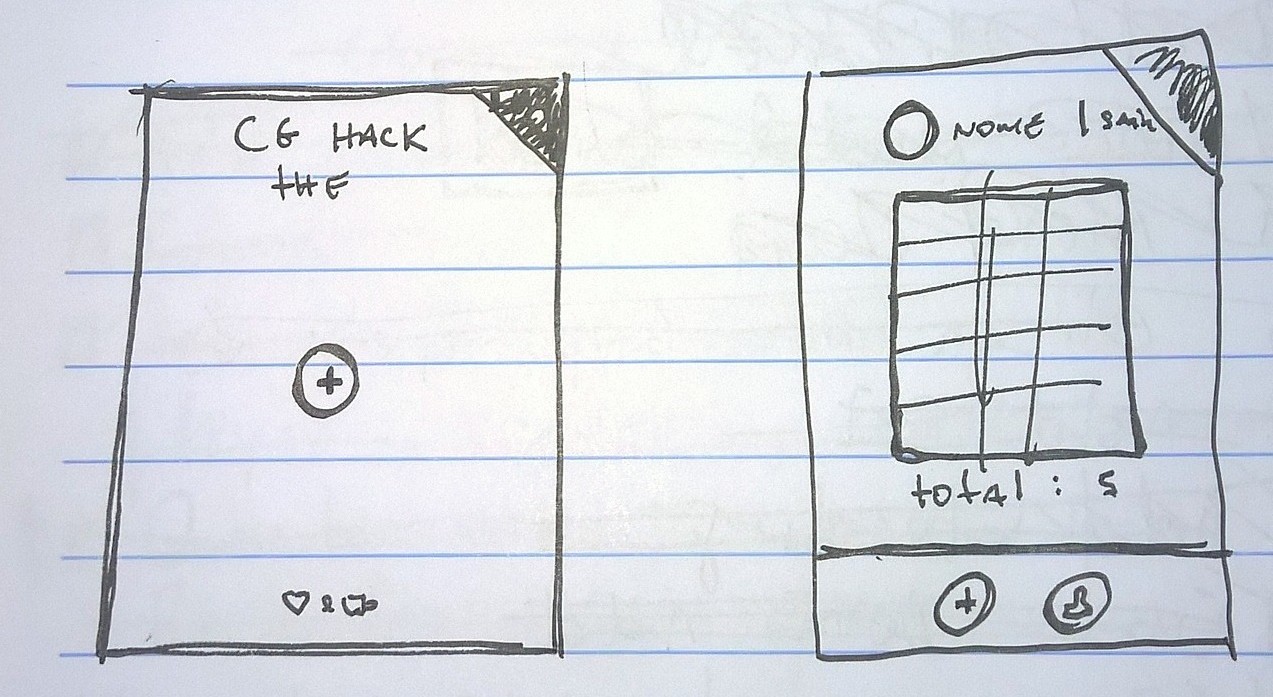 CG HACK
tHE
NOME | SAIR
total : 5